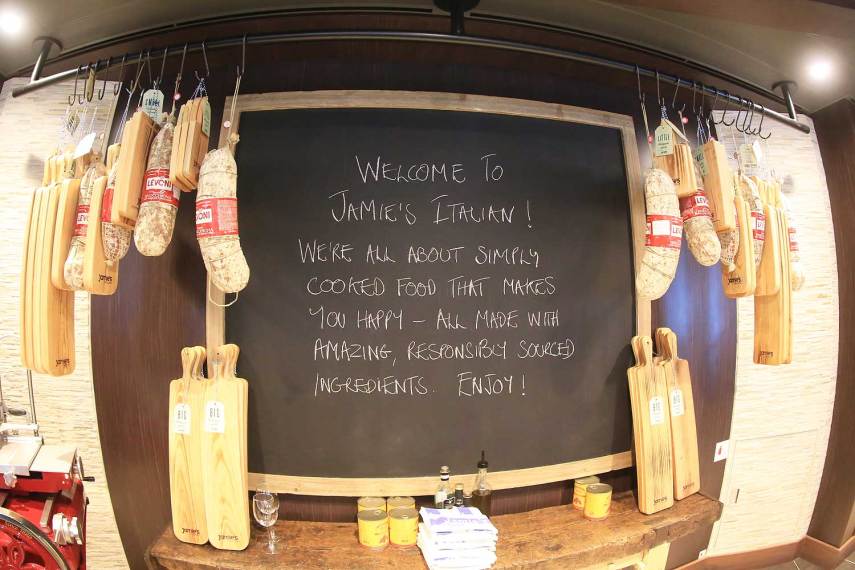 WELCOME TO
JAMIE'S ITALIAN!
WE'RE ALL ABOUT SIMPLY
COOKED FOOD THAT MAKES
YOU HAPPY – ALL MADE WITH
AMAZING, RESPONSIBLY SOURCED
INGREDIENTS. ENJOY!
LEVONI
VONI
LEVONI
LITTLE
BIG
BIG
BIG
BIG
Jamie's
Jamie's
Jamie's
Jamie's